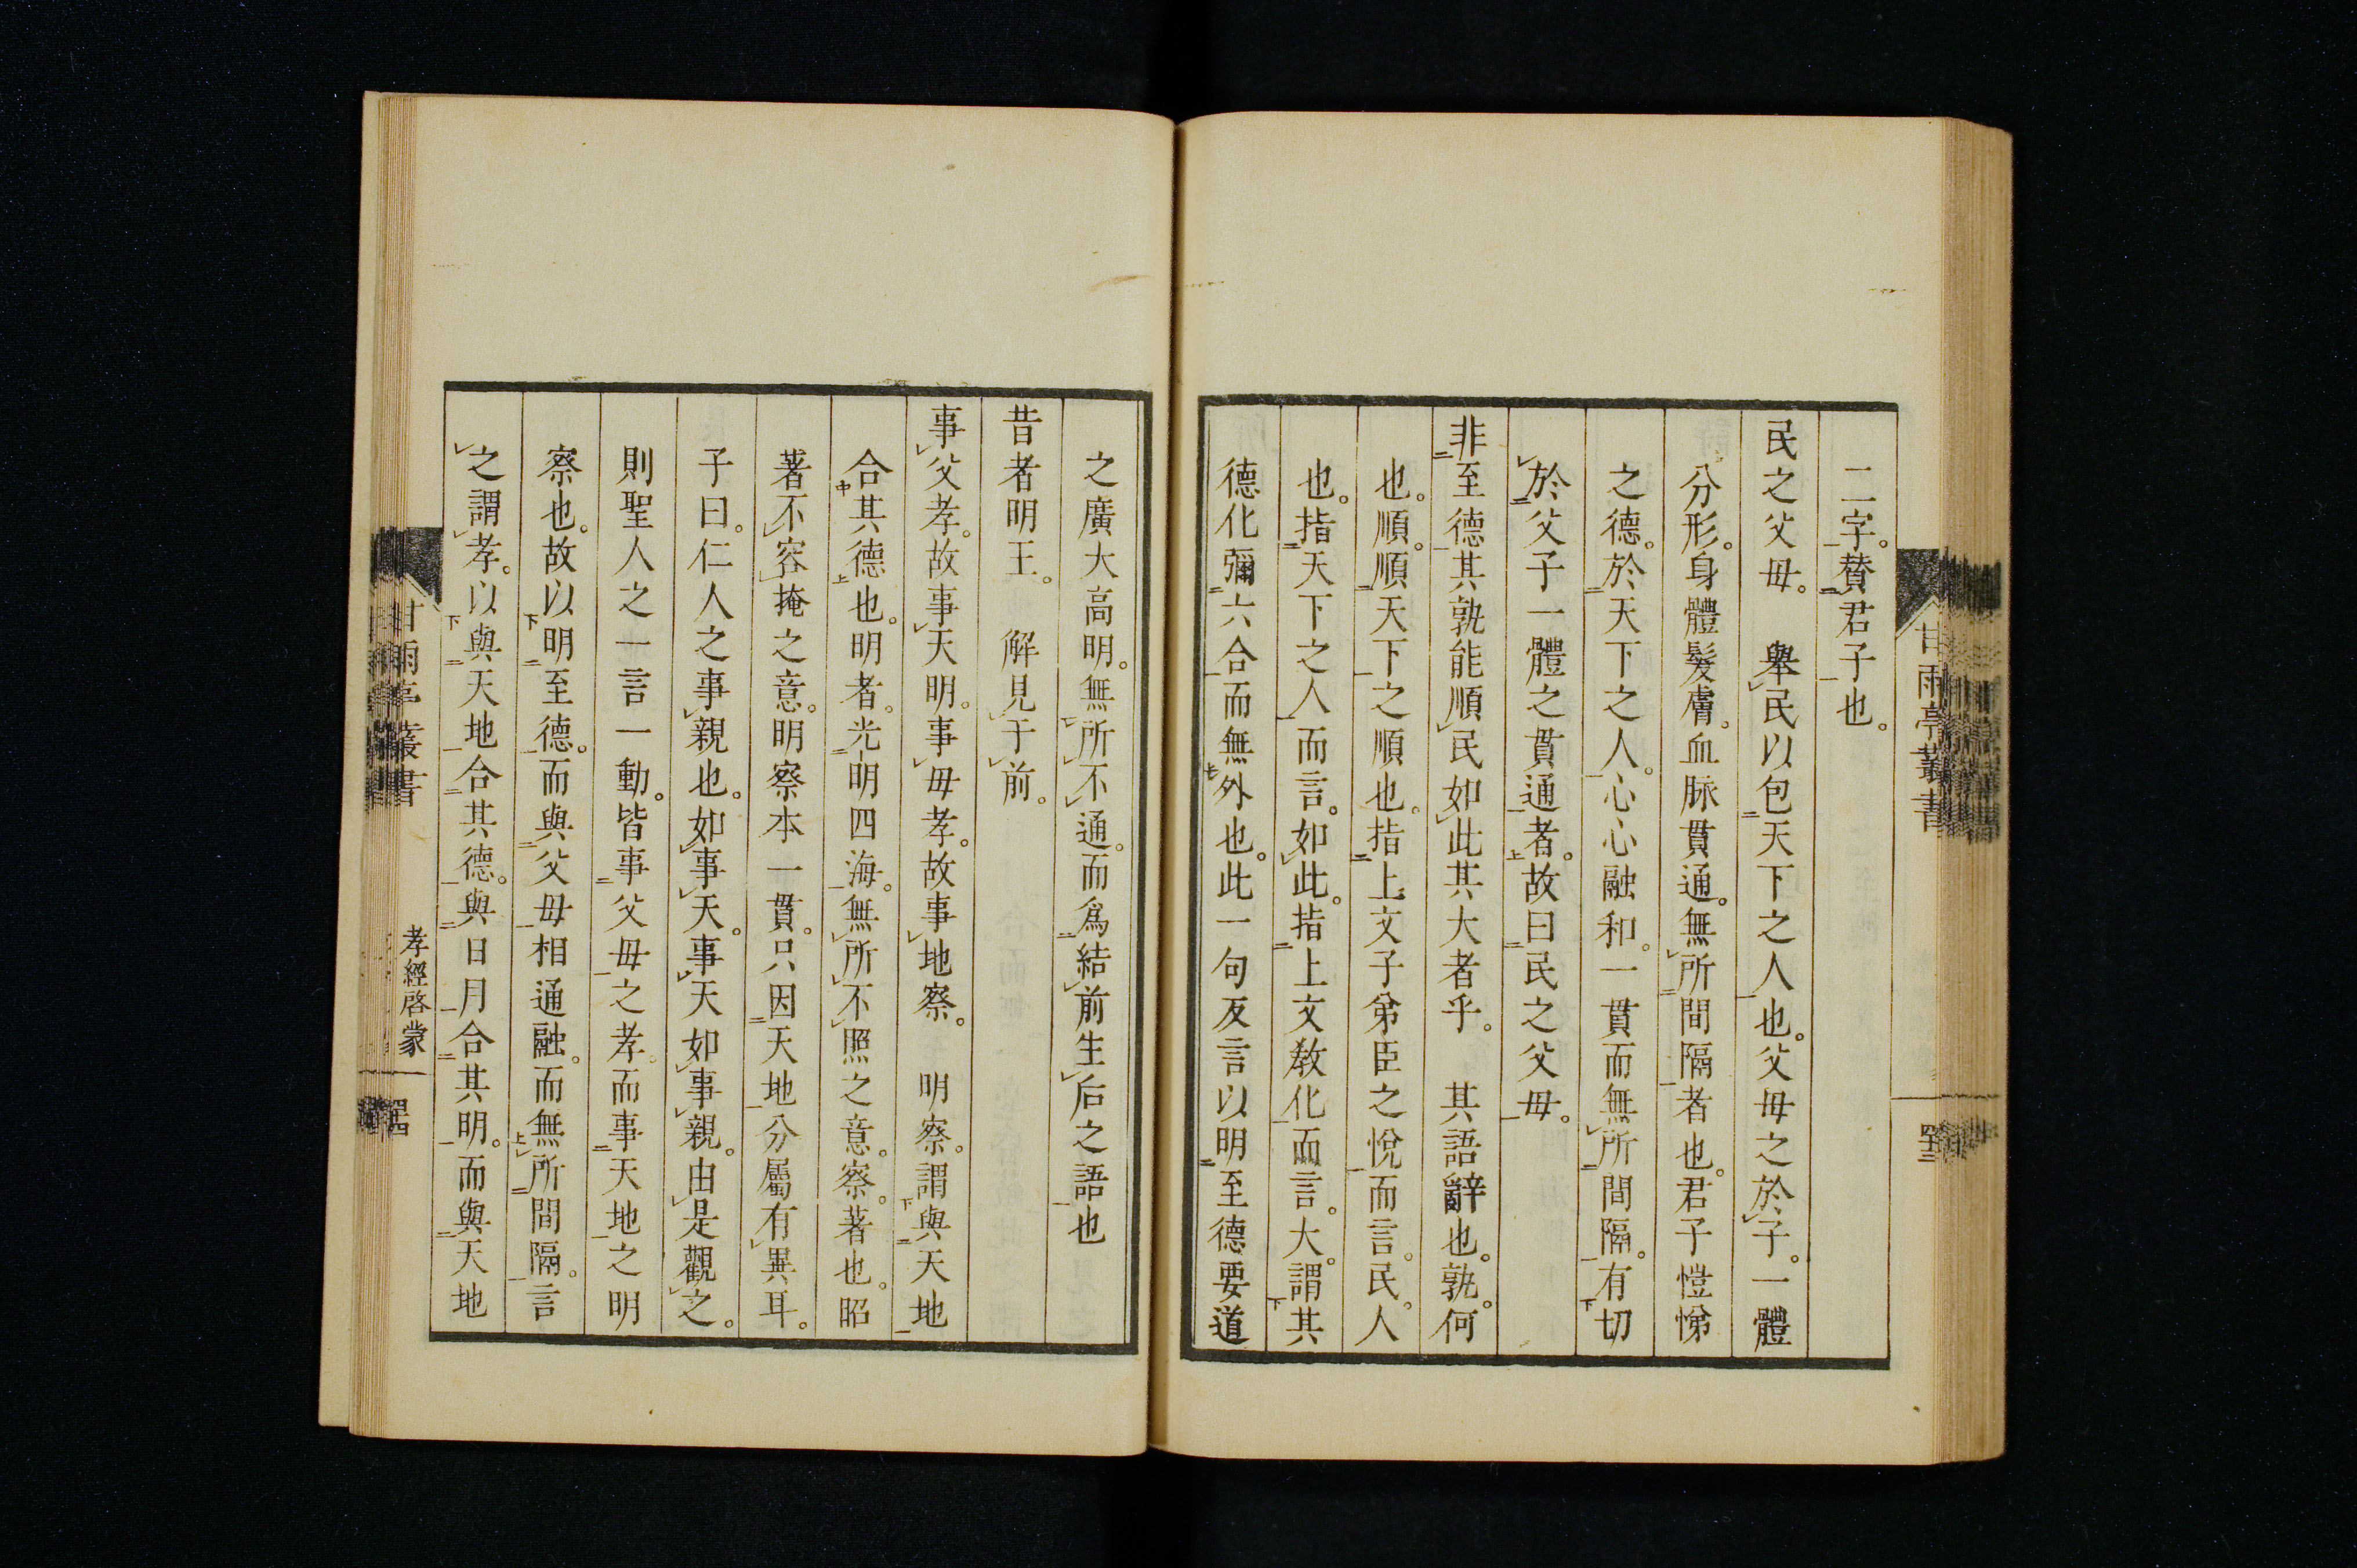 二字。賛君子也。
民之父母。　舉民以包天下之人也。父母之於子。一體
分形。身體髮膚。血脉貫通。無所間隔者也。君子愷悌
之德。於天下之人。心心融和。一貫而無所間隔。有切
於父子一體之貫通者。故曰民之父母。
非至德其孰能順民如此其大者乎。　其語辭也。孰。何
也。順。順天下之順也。指上文子弟臣之悅而言。民。人
也。指天下之人而言。如此。指上文敎化而言。大。謂其
德化彌六合而無外也。此一句反言以明至德要道
甘雨亭叢書
之廣大高明。無所不通。而爲結前生后之語也
昔者明王。　解見于前。
事父孝。故事天明。事母孝。故事地察。　明察。謂與天地
合其德也。明者。光明四海。無所不照之意。察。著也。昭
著不容掩之意。明察本一貫。只因天地分屬有異耳。
子曰。仁人之事親也。如事天。事天如事親。由是觀之。
則聖人之一言一動。皆事父母之孝。而事天地之明
察也。故以明至德。而與父母相通融。而無所間隔。言
之謂孝。以與天地合其德。與日月合其明。而與天地
甘雨亭叢書
孝經啓蒙